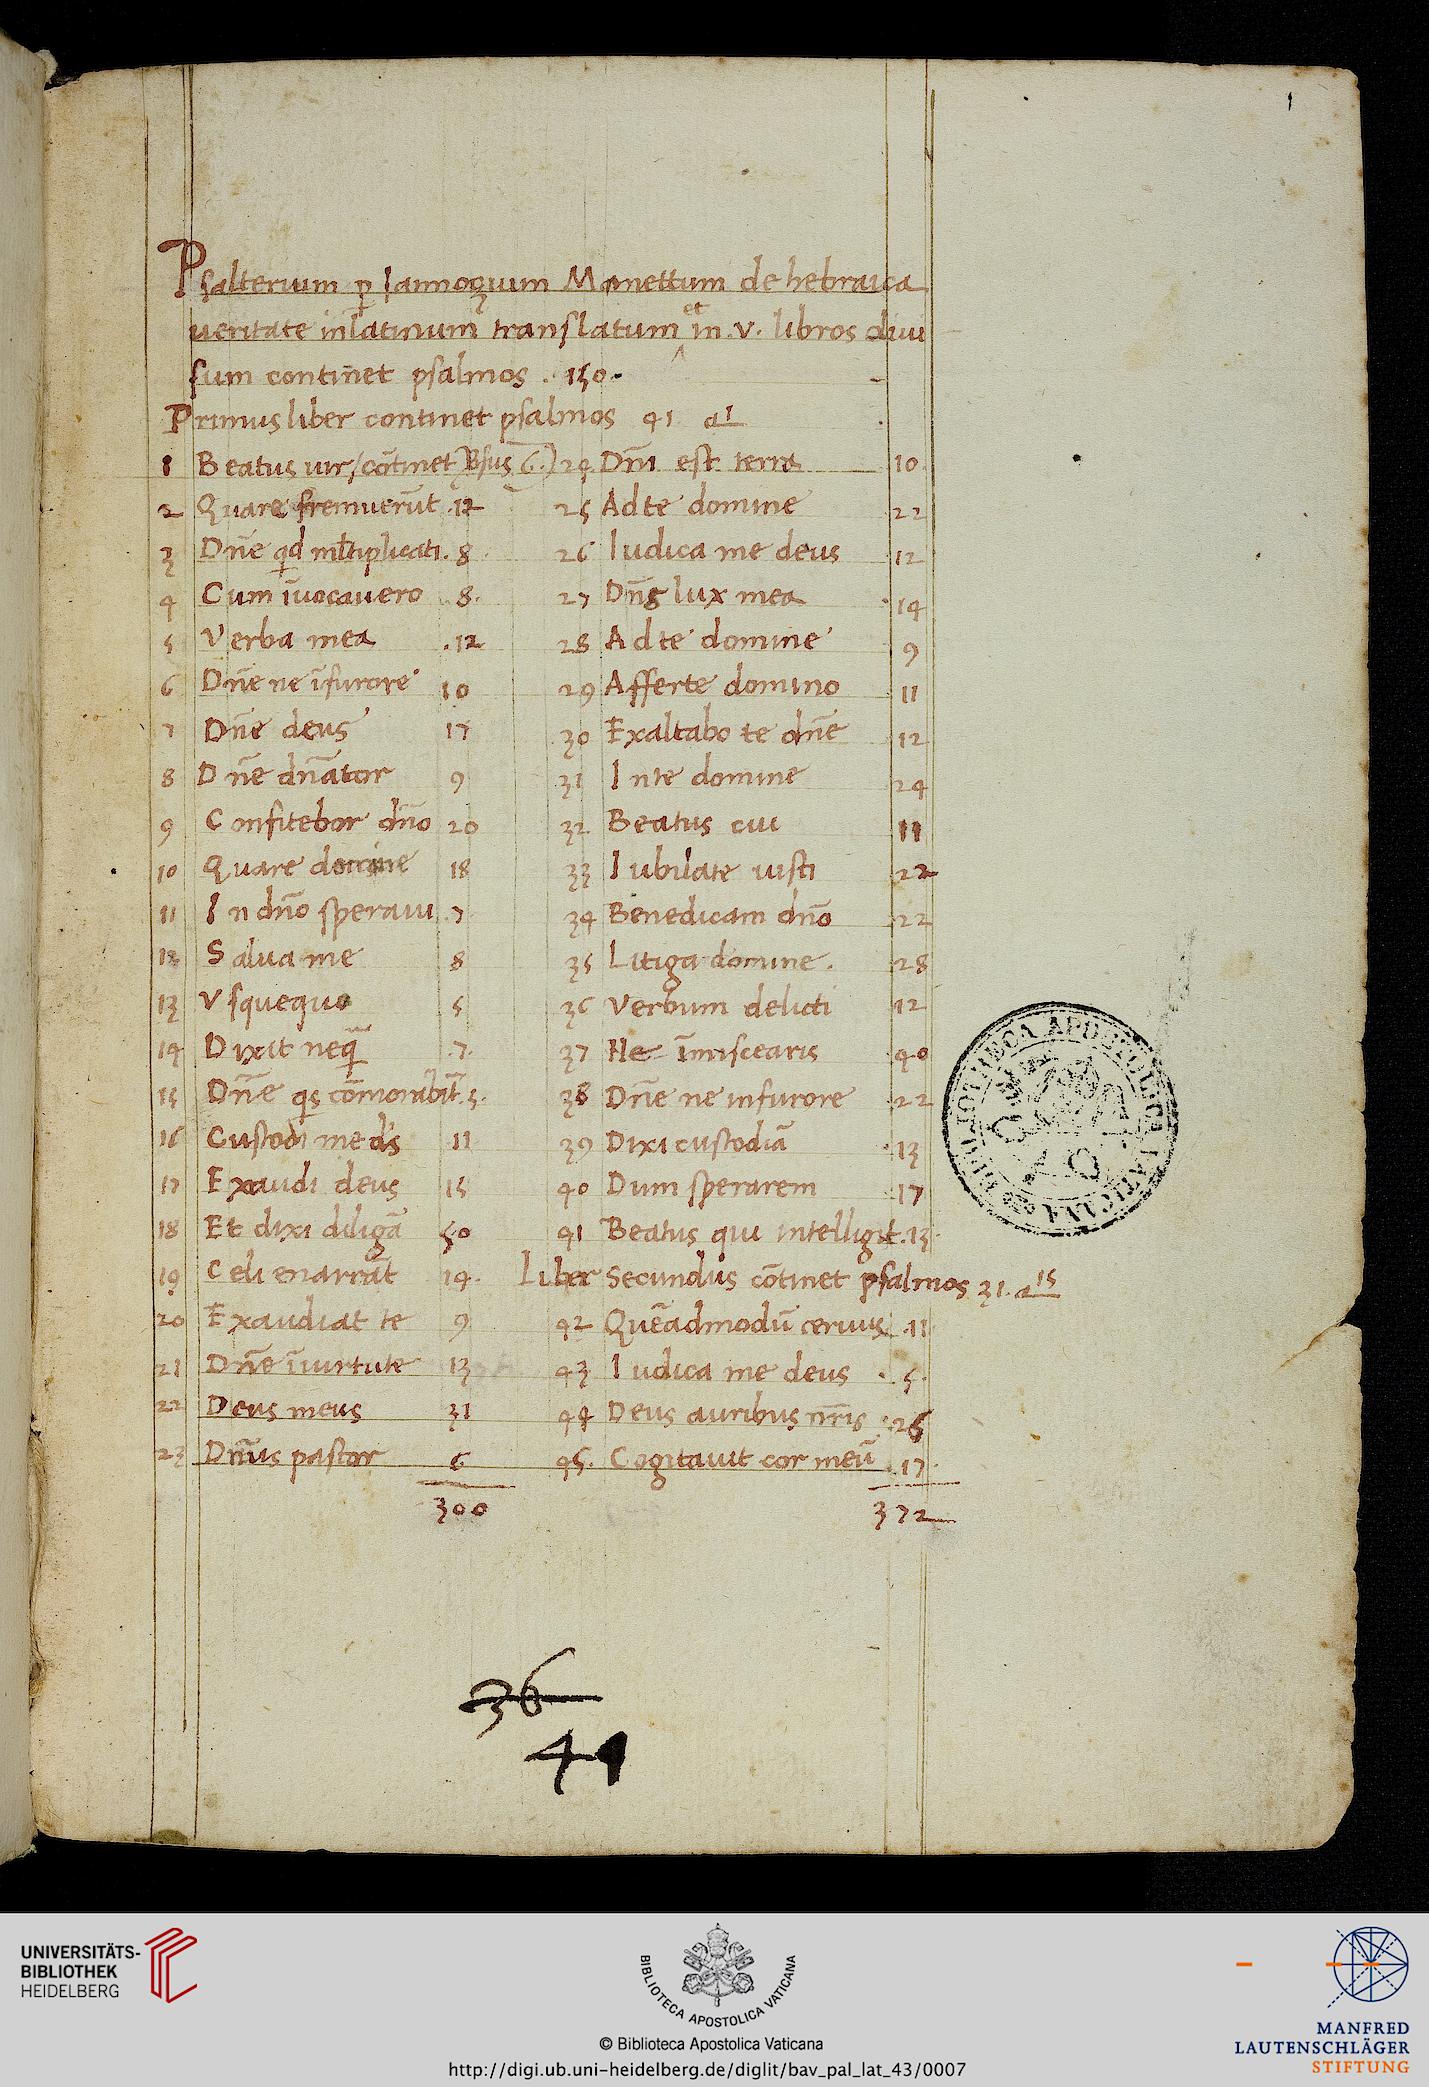 1
Psalterium p Iannoqium Manettum de hebraica
ueritate in latinum translatum et in .v. libros diui
sum continet psalmos . 150.
Primus liber continet psalmos 41 a1
1 Beatus uir, cōtinet Vsus 6.
2 Quare fremuerūt .12
3 Dn̄e qd mltiplicati. 8
4 Cum īuocauero .8.
5 Verba mea .12
6 Dn̄e ne īfurore 10
7 Dn̄e deus 17
8 Dn̄e dn̄ator 9
9 Confitebor dn̄o 20
10 Quare domine 18
11 In dn̄o speraui .7
12 Salua me 8
13 Vsquequo 5
14 Dixit neq̄ .7.
15 Dn̄e qs cōmorabit̄ .5.
16 Custodi me ds 11
17 Exaudi deus 15
18 Et dixi diligā 50
19 Celi enarrāt 14.
20 Exaudiat te 9
21 Dn̄e īuirtute 13
22 Deus meus 31
23 Dn̄us pastor 6
300
24 Dn̄i est terra 10
25 Ad te domine 22
26 Iudica me deus 12
27 Dn̄s lux mea 14
28 Ad te domine 9
29 Afferte domino 11
30 Exaltabo te dn̄e 12
31 In te domine 24
32 Beatus cui 11
33 Iubilate iusti 22
34 Benedicam dn̄o 22
35 Litiga domine. 28
36 Verbum delicti 12
37 Ne īmiscearis 40
38 Dn̄e ne infurore 22
39 Dixi custodiā 13
40 Dum sperarem 17
41 Beatus qui intelligit .13.
Liber secundus cōtinet psalmos 31. a15
42 Quēadmodū ceruus .11
43 Iudica me deus .5.
44 Deus auribus nr̄is 26
45. Cogitauit cor meū .17.
372
BIBLIOTHECA APOSTOLICA VATICANA
36
41
UNIVERSITÄTS-
BIBLIOTHEK
HEIDELBERG
BIBLIOTECA APOSTOLICA VATICANA
© Biblioteca Apostolica Vaticana
http://digi.ub.uni-heidelberg.de/diglit/bav_pal_lat_43/0007
MANFRED
LAUTENSCHLÄGER
STIFTUNG